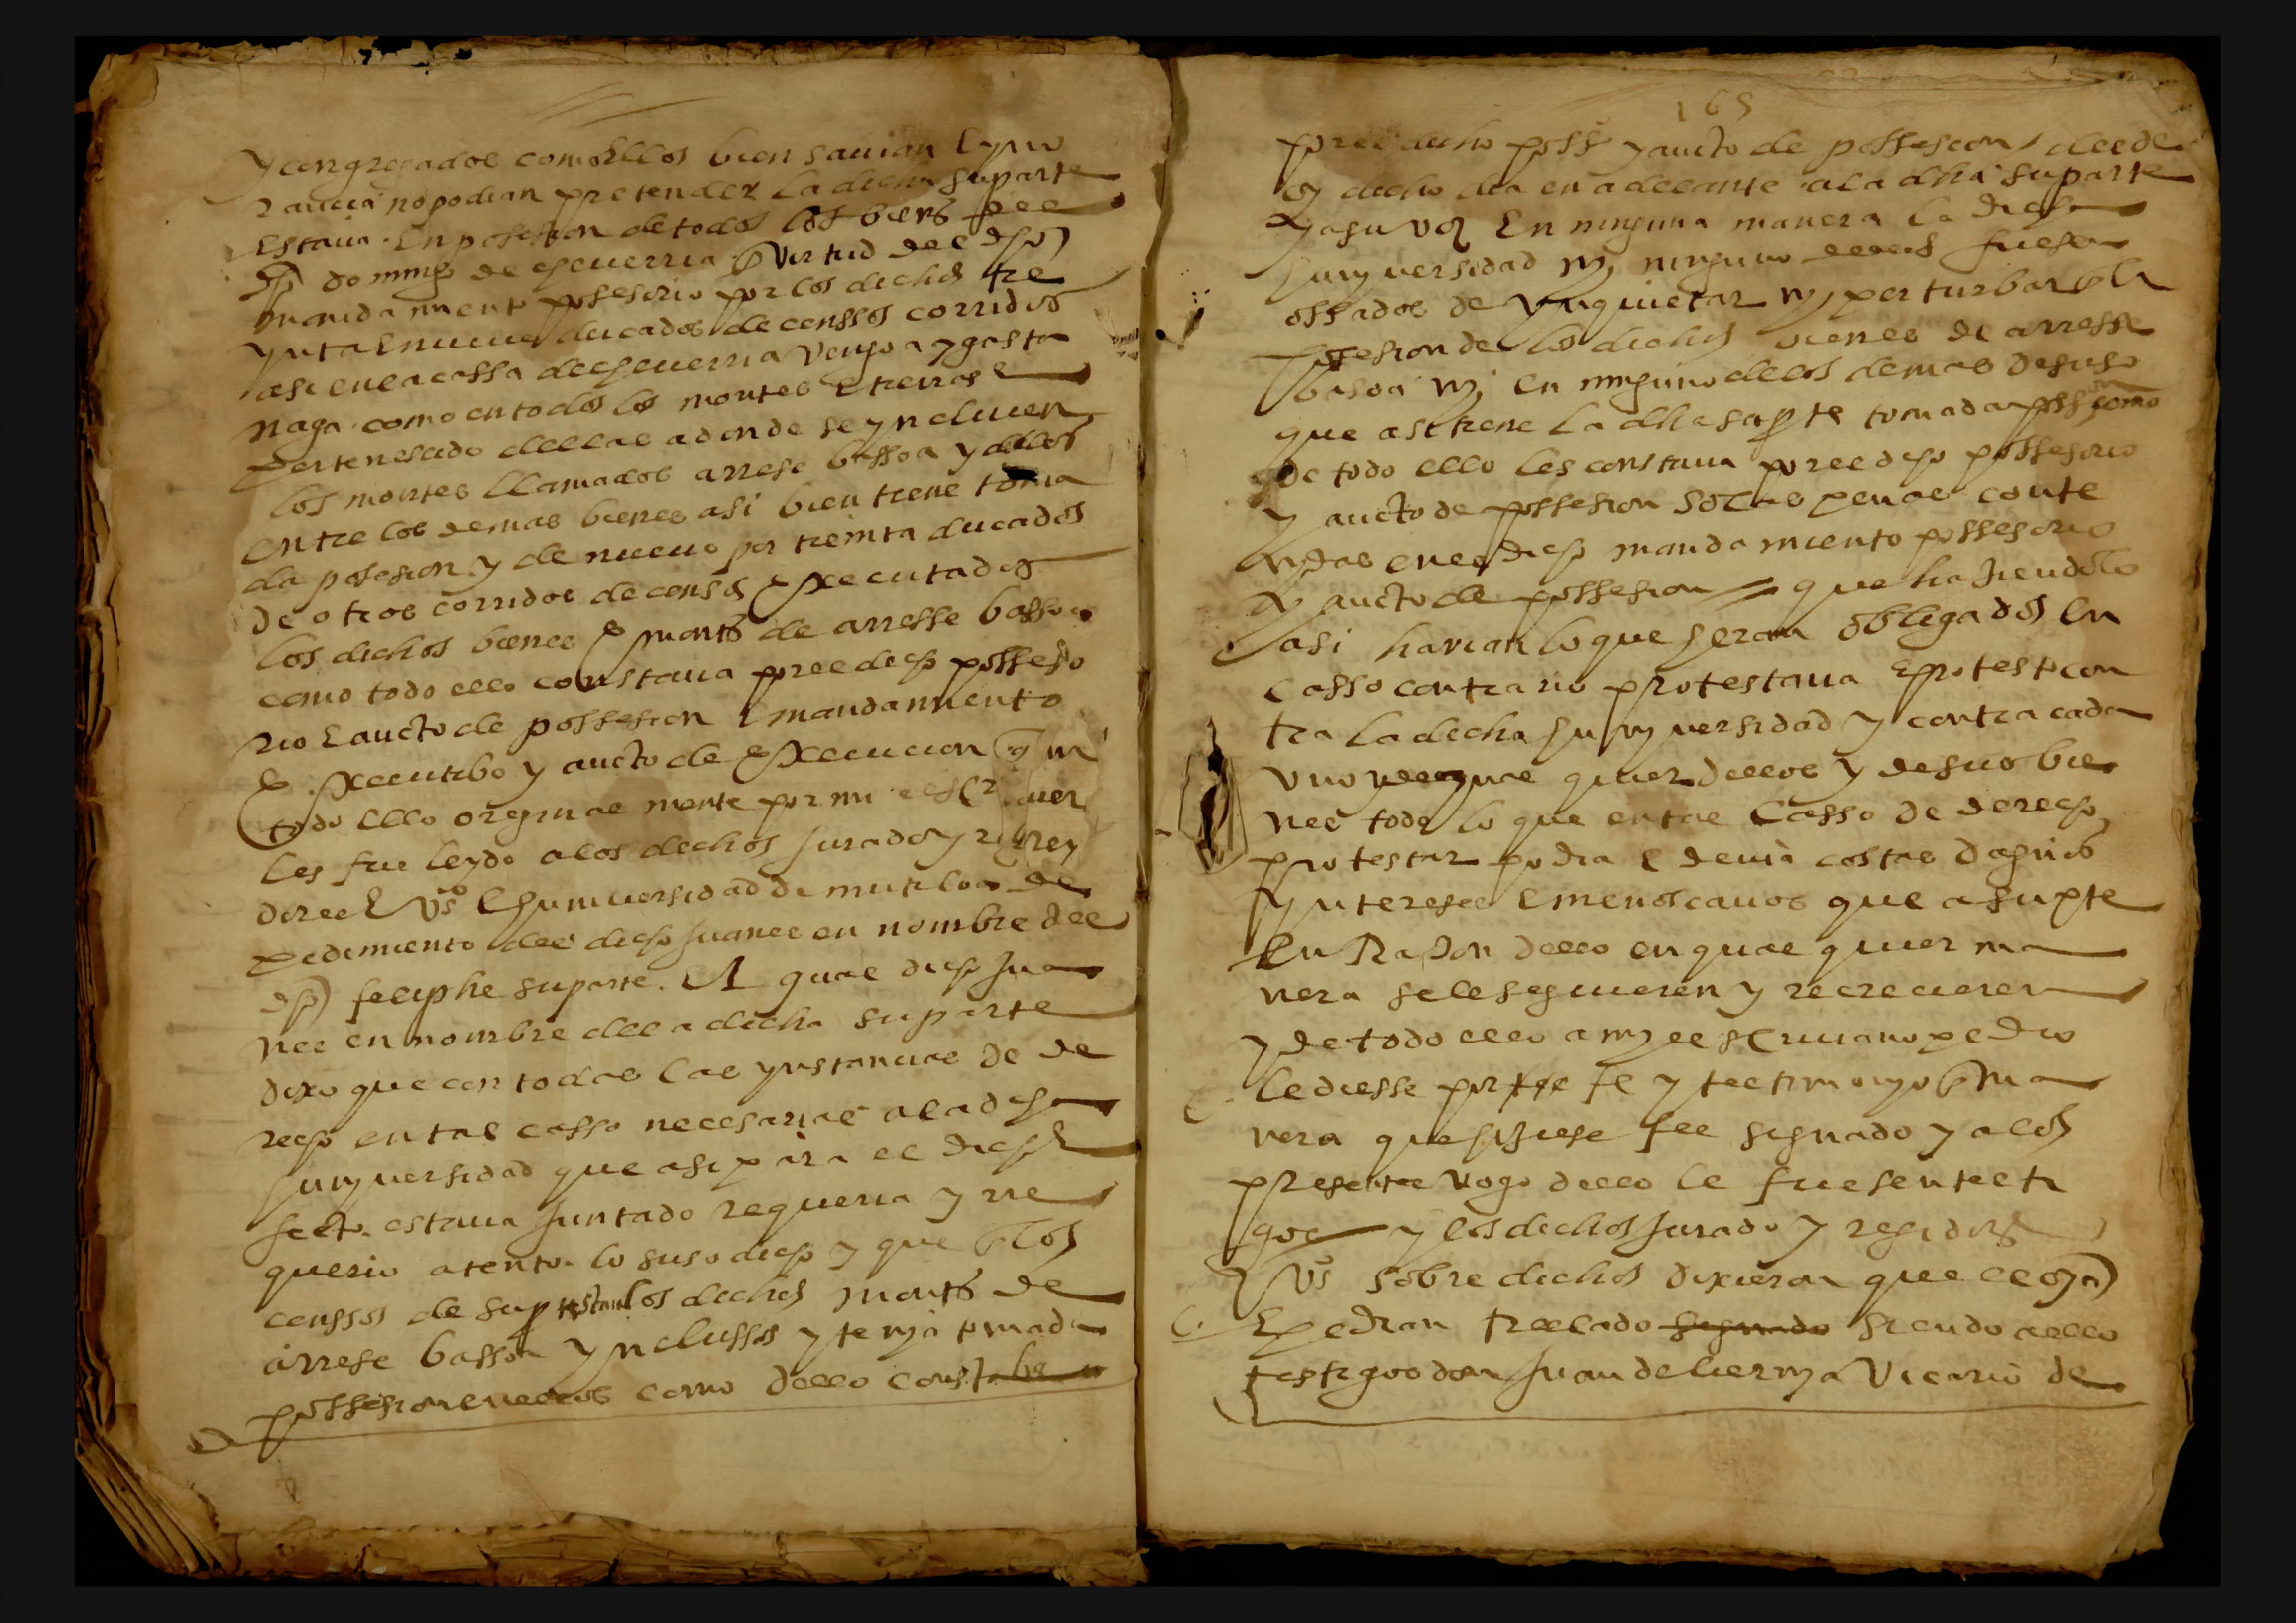 y congregados como Ellos bien sauian E yno
rancia no podian pretender La dicha su parte
Estaua En posesion de todos los biens del
dho domingo de echeuerria virtud del dho
mandamiento posesorio por los dichos tre
ynta E nueue ducados de censsos corridos
asi en la cassa de echeuerria vengoa y gasta
naga como en todos los montes E tierras
pertenescido dellas adonde se yncluien
los montes llamados arrese bassoa y dellos
entre los demas bienes asi bien tiene toma
da posesion y de nueuo por treinta ducados
de otros corridos de censos Executados
los dichos bienes E monts de arresse bassoa
como todo ello constaua por el dicho posseso
rio E aucto de possesion E mandamiento
Executibo y aucto de Execucion
todo Ello originalmente por mi el
les fue leydo a los dichos Jurado y
E Vos E huniuersidad de mutiloa de
pedimiento del dicho Juanes en nombre del
dho feliphe su parte. El qual dicho Jua
nes en nombre de la dicha su parte
dixo que con todas las ynstancias de de
recho en tal casso necesarias a la dha
huniuersidad que asi para el dicho E
fecto estaua Juntado requeria y re
querio atento lo suso dicho y que los
censsos de su pte los dichos monts de
arrese bassoa ynclussos y tenia tomada
possesion en ellos como dello consta
165
por el dicho poss y aucto de possesion desde
oy dicho dia en adelante a la dha su parte
y a su voz En ninguna manera la dicha
huniuersidad ni ninguno dellos fuesen
ossados de ynquietar ni perturbar la
possesion de los dichos bienes de arresse
basoa ni en ninguno de los demas de suso
que asi tiene la dha su pte tomada poss como
de todo ello les constaua por el dicho possesorio
y aucto de possesion so las penas conte
nidas en el dicho mandamiento possesorio
y aucto de possesion que haziendolo
asi harian lo que heran obligados En
casso contrario protestaua E protesto con
tra la dicha huniuersidad y contra cada
vno y qual quier dellos y de sus bie
nes todo lo que en tal Casso de derecho
protestar podia E deuia costas dagnios
yntereses E menoscauos que a su pte
En Razon dello en qual quier ma
nera se le seguieren y recrecieren
y de todo ello a mi el scriuano pedio
le diesse por fe y testimonyo ma
nera que hiziese fee signado y a los
presentes rogo dello le fuesen testi
gos y los dichos Jurado y regidors
y Vos sobre dichos dixieron que
E pedian treslado signado siendo a ello
testigos don Juan de lierni Vicario de